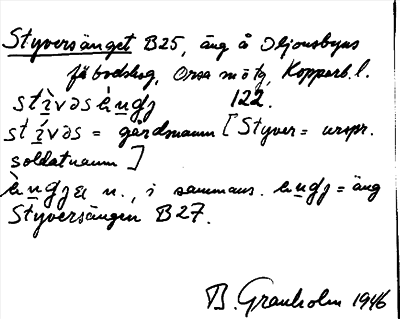 Styversänget B25, äng å Oljonsbyns
fäbodskog, Orsa m o tg, Kopparb. l.
122.
= gårdsnamn [Styver = urspr.
soldatnamn]
n., i sammans. = äng
Styversängen B27.
B. Granholm 1946